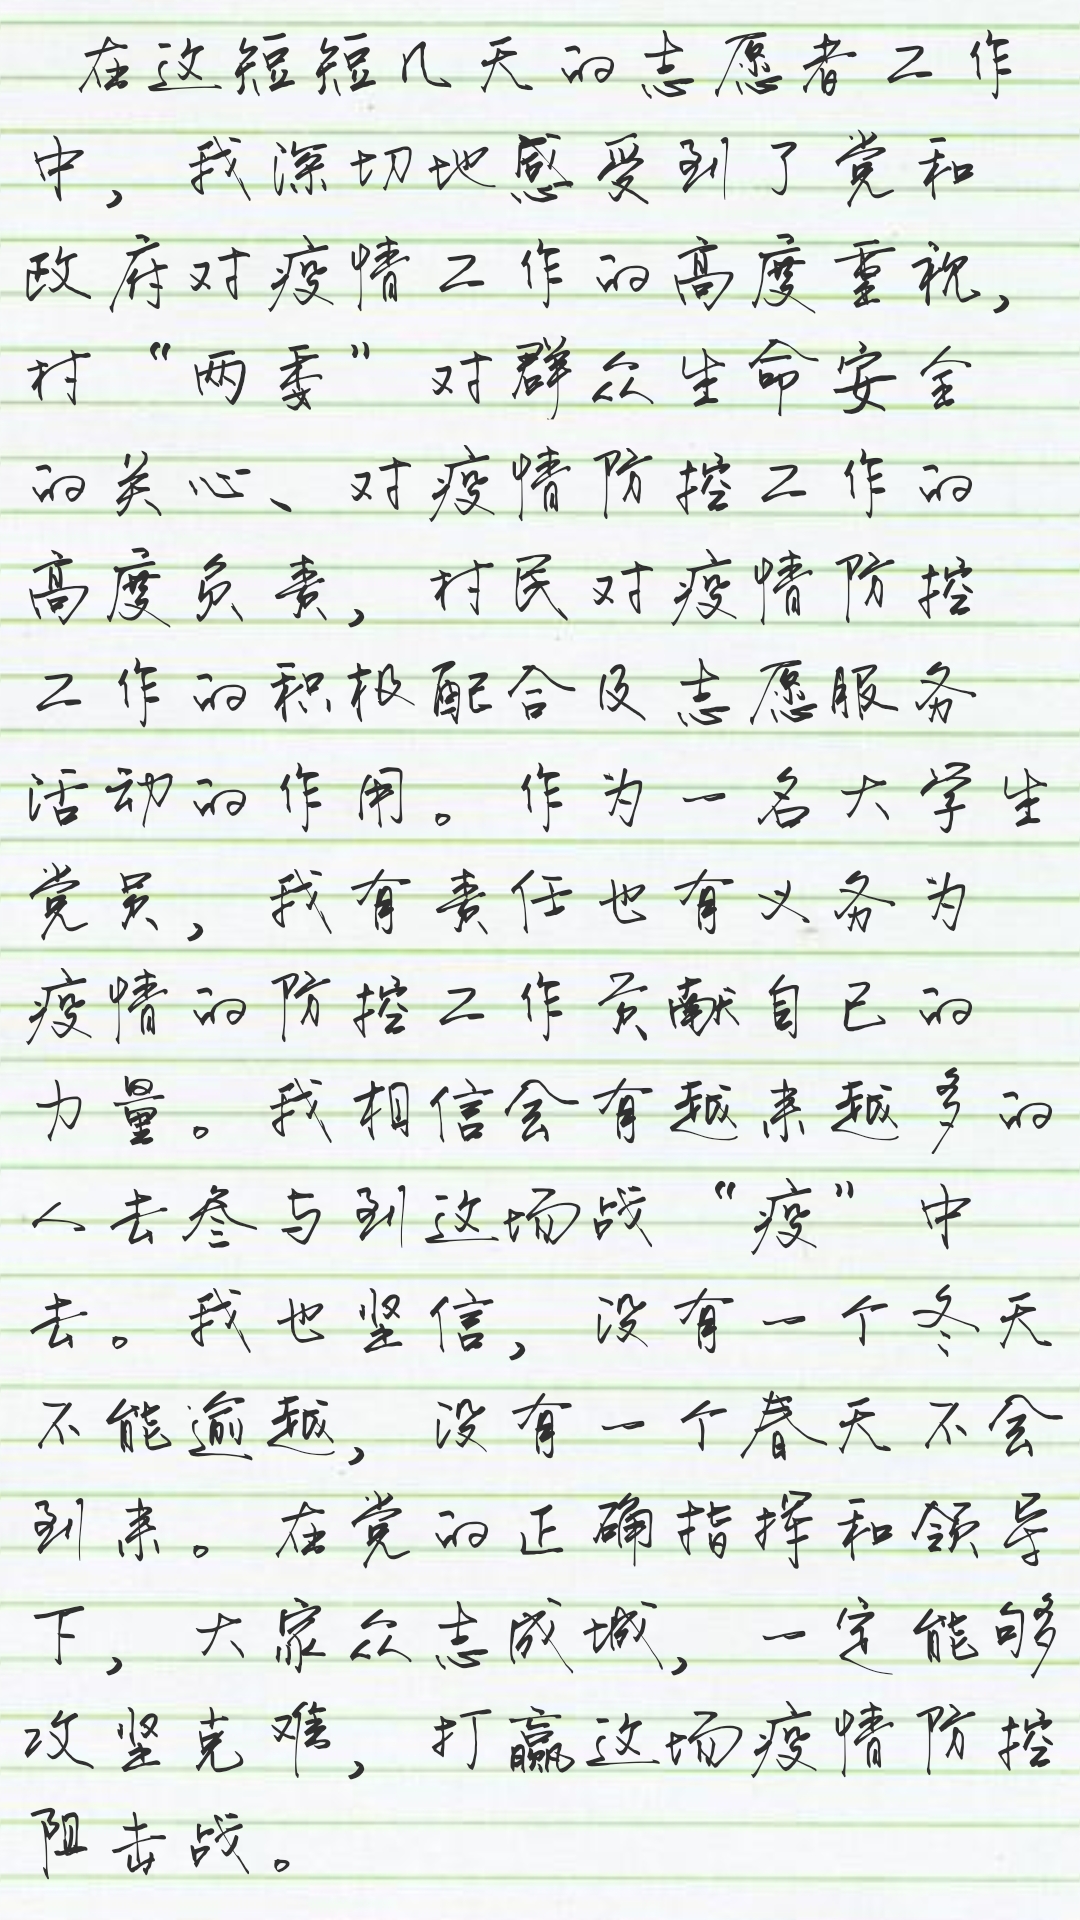 在这短短几天的志愿者工作
中，我深切地感受到了党和
政府对疫情工作的高度重视，
村“两委”对群众生命安全
的关心、对疫情防控工作的
高度负责，村民对疫情防控
工作的积极配合及志愿服务
活动的作用。作为一名大学生
党员，我有责任也有义务为
疫情的防控工作贡献自己的
力量。我相信会有越来越多的
人去参与到这场战“疫”中
去。我也坚信，没有一个冬天
不能逾越，没有一个春天不会
到来。在党的正确指挥和领导
下，大家众志成城，一定能够
攻坚克难，打赢这场疫情防控
阻击战。